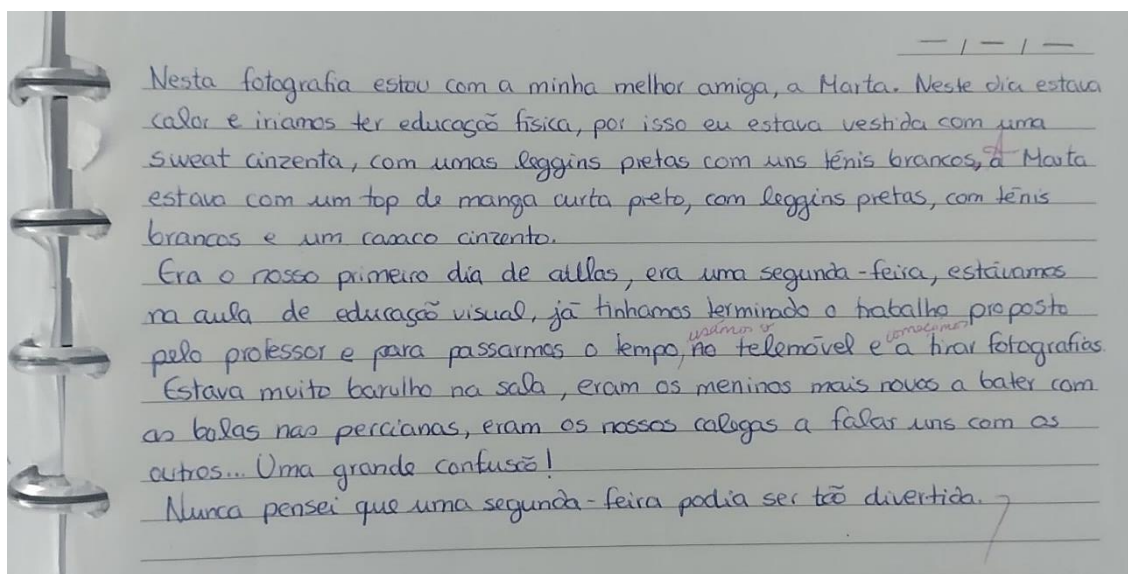 — / — / —
Nesta fotografia estou com a minha melhor amiga, a Marta. Neste dia estava
calor e iriamos ter educação física, por isso eu estava vestida com uma
sweat cinzenta, com umas leggins pretas com uns ténis brancos, a Marta
estava com um top de manga curta preto, com leggins pretas, com ténis
brancos e um casaco cinzento.
Era o nosso primeiro dia de aulas, era uma segunda-feira, estávamos
na aula de educação visual, já tinhamos terminado o trabalho proposto
usámos o começámos
pelo professor e para passarmos o tempo, no telemóvel e a tirar fotografias.
Estava muito barulho na sala, eram os meninos mais novos a bater com
as bolas nas percianas, eram os nossos calegas a falar uns com os
outros... Uma grande confusão!
Nunca pensei que uma segunda-feira podia ser tão divertida.